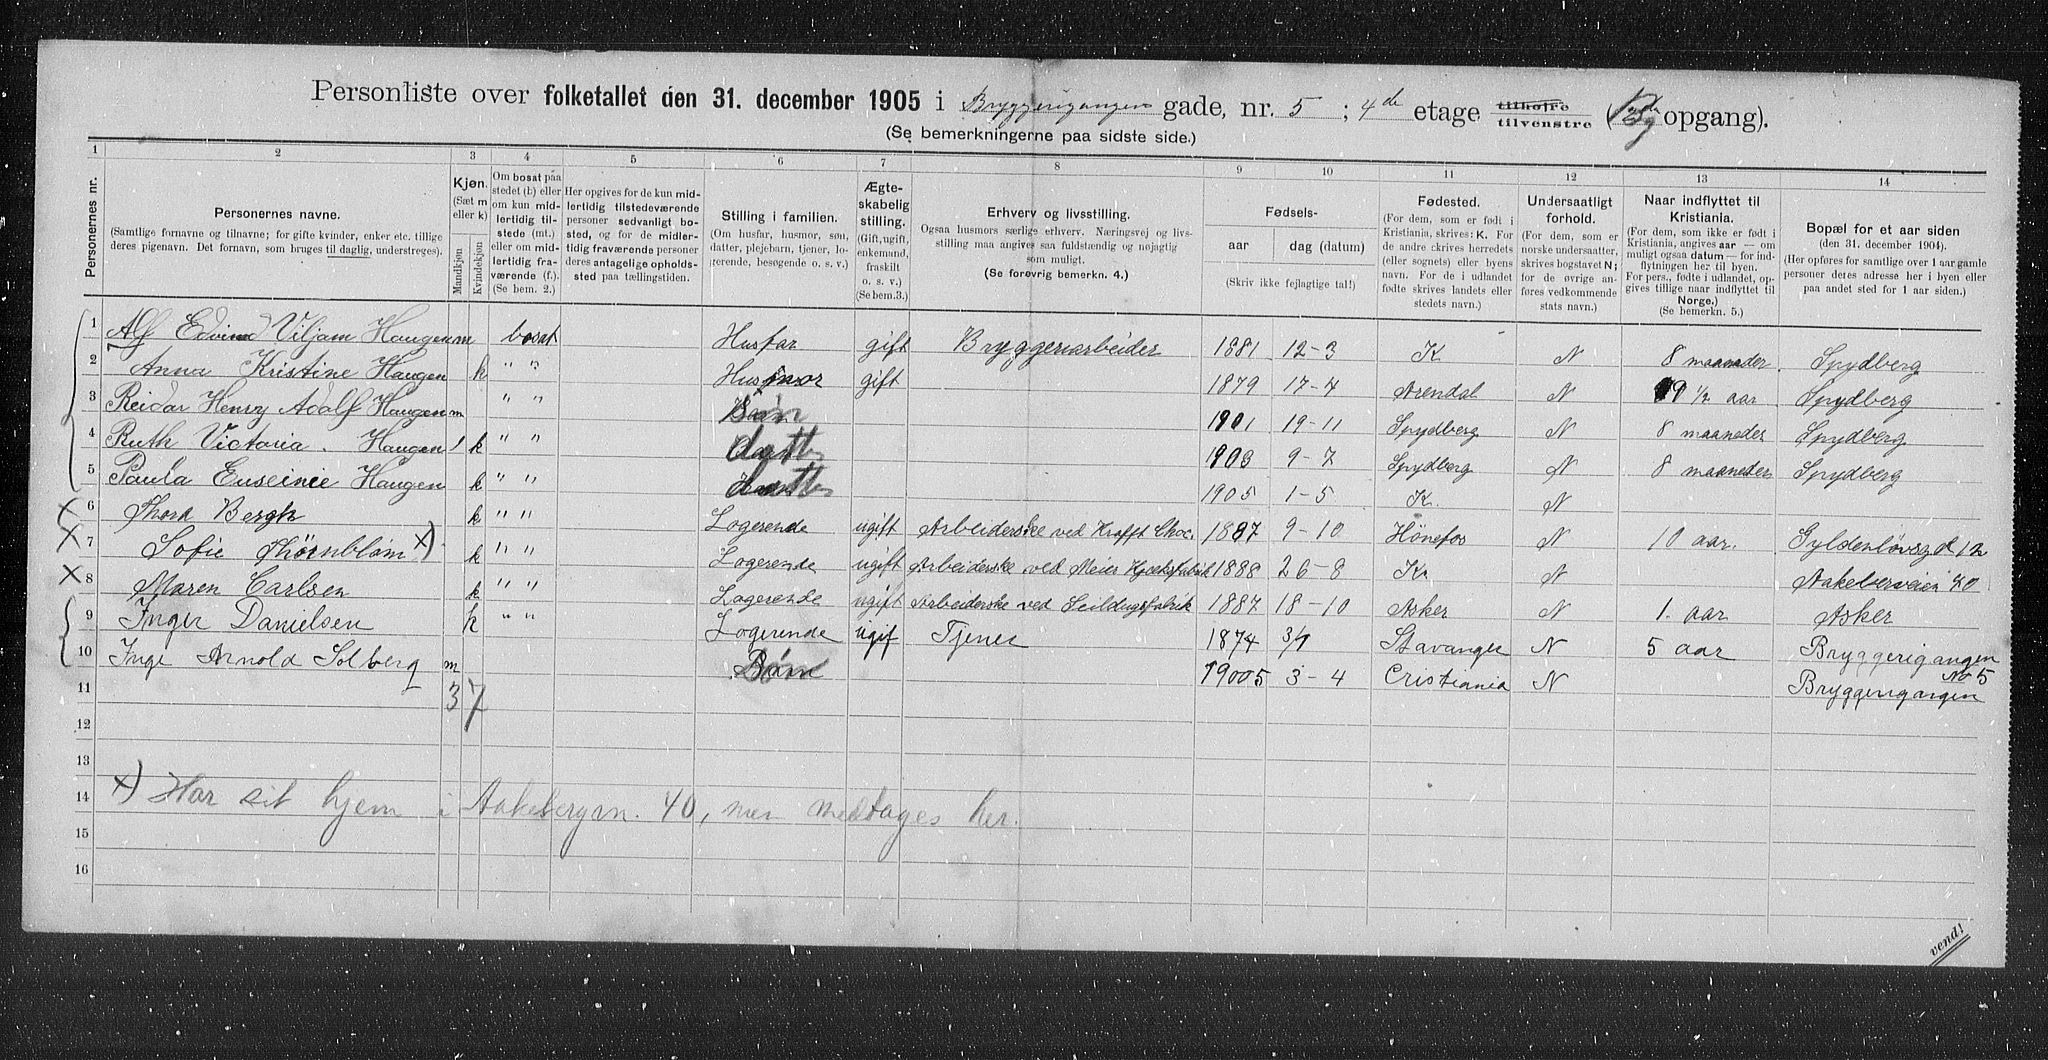 Personliste over folketallet den 31. december 1905 i Bryggerigangen gade, nr. 5 ; 4de etage tilhøjre tilvenstre ( opgang).
(Se bemerkningerne paa sidste side.)
1 2 3 4 5 6 7 8 9 10 11 12 13 14
Personernes nr.
Personernes navne.
(Samtlige fornavne og tilnavne; for gifte kvinder, enker etc. tillige deres pigenavn. Det fornavn, som bruges til daglig, understreges).
Kjøn. (Sæt m eller k)
Mandkjøn
Kvindekjøn
Om bosat paa stedet (b) eller om kun midlertidig tilstede (mt.) eller om midlertidig fraværende (f.) (Se bem. 2.)
Her opgives for de kun midlertidig tilstedeværende personer sedvanligt bosted, og for de midlertidig fraværende personer deres antagelige opholdssted paa tællingstiden.
Stilling i familien.
(Om husfar, husmor, søn, datter, plejebarn, tjener, logerende, besøgende o. s. v.)
Ægteskabelig stilling.
(Gift, ugift, enkemand, fraskilt o. s. v.) (Se bem. 3.)
Erhverv og livsstilling.
Ogsaa husmors særlige erhverv. Næringsvej og livsstilling maa angives saa fuldstændig og nøjagtig som muligt.
(Se forøvrig bemerkn. 4.)
Fødsels-
aar dag (datum)
(Skriv ikke fejlagtige tal!)
Fødested.
(For dem, som er født i Kristiania, skrives: K. For de andre skrives herredets (eller sognets) eller byens navn. For de i udlandet fødte skrives landets eller stedets navn.)
Undersaatligt forhold.
(For dem, som er norske undersaatter, skrives bogstavet N; for de øvrige anføres vedkommende stats navn.)
Naar indflyttet til Kristiania.
(For dem, som ikke er født i Kristiania, angives aar — om muligt ogsaa datum — for indflytningen her til byen. For pers., fødte i udlandet, opgives tillige naar indflyttet til Norge.)
(Se bemerkn. 5.)
Bopæl for et aar siden
(den 31. december 1904).
(Her opføres for samtlige over 1 aar gamle personer deres adresse her i byen eller paa andet sted for 1 aar siden.)
1 Alf Edvind Viljam Haugen m bosat Husfar gift Bryggeriarbeider 1881 12-3 K N 8 maaneder. Spydberg
2 Anna Kristine Haugen k " " Husmor gift 1879 17-7 Arendal N 9 1/2 aar Spydberg
3 Reidar Henry Adolf Haugen m " " Søn 1901 19-11 Spydberg N 8 maaneder Spydberg
4 Ruth Victoria. Haugen k " " datter 1903 9-7 Spydberg N 8 maaneder Spydberg
5 Paula Euseinie Haugen k " " datter 1905 1-5 K. N
x 6 Thora Bergh k " " Logerende ugift Arbeiderske ved Krafft Choc. 1887 9-10 Hönefos N 10 aar. Gyldenlövsgd 12
x 7 Sofie Thörnblom x) k " " Logerende ugift Arbeiderske ved Meier Hjæksfabrik 1888 26-8 Kr N Aakeberveien 40
x 8 Maren Carlsen k " " Logerende ugift Arbeiderske ved Seildugsfabrik 1887 18-10 Asker N 1. aar Asker
9 Inger Danielsen k " " Logerende ugif Tjener 1874 3/7 Stavanger N 5 aar Bryggerigangen No 5
10 Inge Arnold Solberg m Søn 19005 3-4 Cristiania N Bryggerigangen
11 3 7
12
13
14 x) Har sit hjem i Aakebergvn. 40, men medtages her.
15
16
vend!